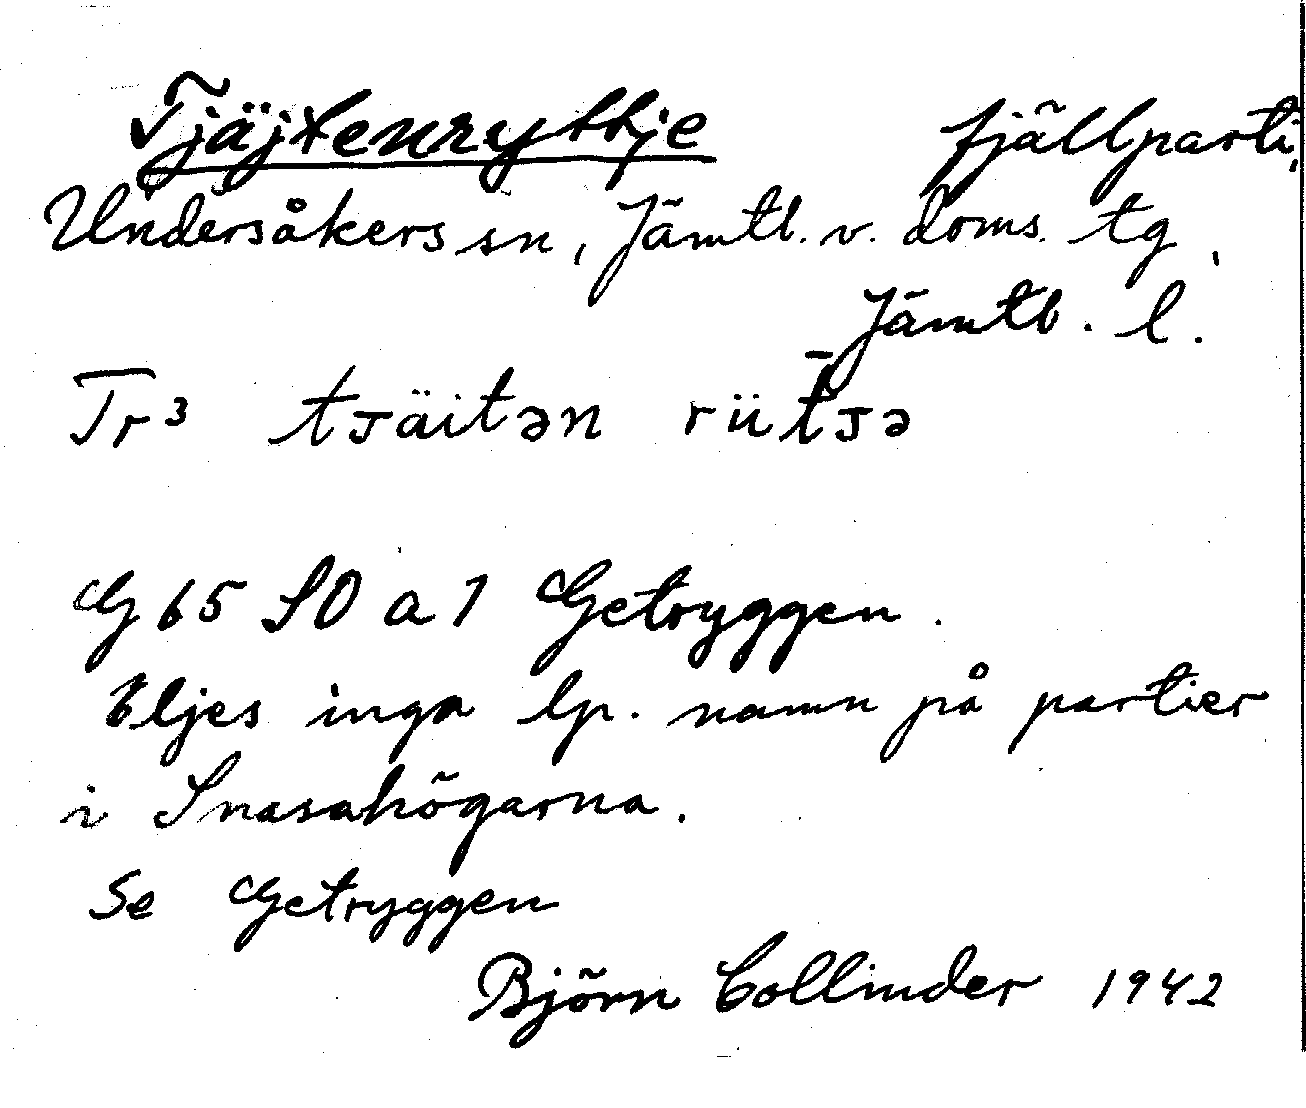 Tjäjtenryttje fjällparti,
Undersåkers sn, Jämtl. v. doms. tg,
Jämtl. l.
Tr³ tᴊäitən rüt̄ᴊə
G 65 SO a 1 Getryggen.
Eljes inga lp. namn på partier
i Snasahögarna.
Se Getryggen
Björn Collinder 1942